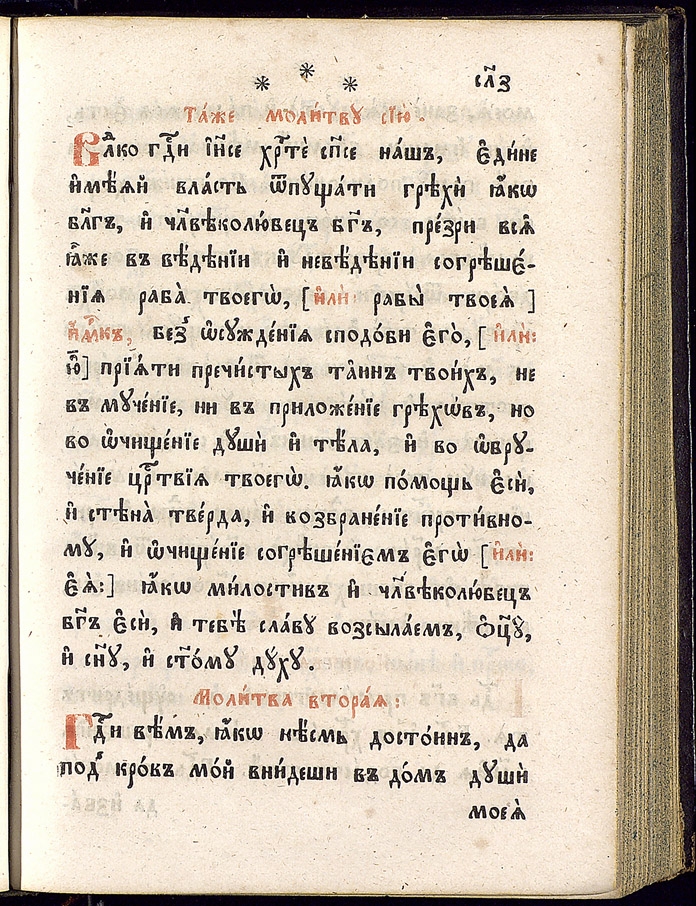 * * *
сл҃з
Та́же моли́тву сїю̀.
Влⷣко гдⷭ҇и і҆и҃се хрⷭ҇тѐ сп҃се на́шъ, є҆ди́не
и҆мѣ́ѧй вла́сть ѿпꙋща́ти грѣхѝ ꙗ҆́кѡ
бл҃гъ, и҆ чл҃вѣколю́бецъ бг҃ъ, пре́зри всѧ̑
ꙗ҆̀же въ вѣ́дѣнїи и҆ невѣ́дѣнїи согрѣше́-
нїѧ раба̀ твоегѡ̀, [и҆лѝ рабы̀ твоеѧ̀]
и҆м҃къ, без̾ ѡ҆сꙋжде́нїѧ сподо́би є҆го̀, [и҆лѝ:
ю҆̀] прїѧ́ти пречи́стыхъ та́инъ твои́хъ, не
въ мꙋче́нїе, ни въ приложе́нїе грѣхѡ́въ, но
во ѡ҆чище́нїе дꙋшѝ и҆ тѣ́ла, и҆ во ѡ҆брꙋ-
че́нїе црⷭ҇твїѧ твоегѡ̀. ꙗ҆́кѡ по́мощь є҆сѝ,
и҆ стѣна̀ тве́рда, и҆ возбране́нїе проти́вно-
мꙋ, и҆ ѡ҆чище́нїе согрѣше́нїемъ є҆гѡ̀ [и҆лѝ:
є҆ѧ̀:] ꙗ҆́кѡ ми́лостивъ и҆ чл҃вѣколю́бецъ
бг҃ъ є҆сѝ, и҆ тебѣ̀ сла́вꙋ возсыла́емъ, ѻ҆ц҃ꙋ̀,
и҆ сн҃ꙋ, и҆ ст҃о́мꙋ дꙋ́хꙋ.
Моли́тва втора́ѧ:
Гдⷭ҇и вѣ́мъ, ꙗ҆́кѡ нѣ́смь досто́инъ, да
под̾ кро́въ мо́й вни́деши въ до́мъ дꙋшѝ
моеѧ̀